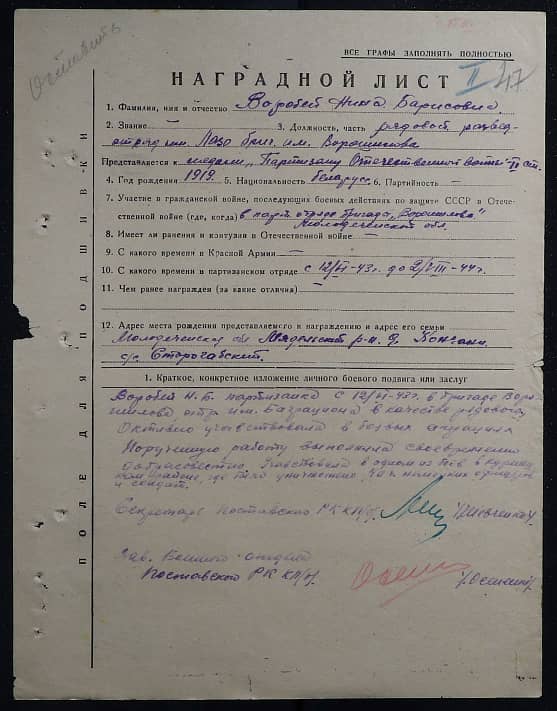 Оставить
ВСЕ ГРАФЫ ЗАПОЛНЯТЬ ПОЛНОСТЬЮ
НАГРАДНОЙ ЛИСТ II 47
1. Фамилия, имя и отчество Воробей Нина Барисовна
2. Звание — 3. Должность, часть рядовой, развед-
отряд им. Лазо бриг. им. Ворошилова
Представляется к медали „Партизану Отечественной войны" II ст.
4. Год рождения 1919. 5. Национальность беларус. 6. Партийность —
7. Участие в гражданской войне, последующих боевых действиях по защите СССР в Отече-
ственной войне (где, когда) в парт. отряде бригада „Ворошилова"
Молодеченской обл.
8. Имеет ли ранения и контузии в Отечественной войне —
9. С какого времени в Красной Армии —
10. С какого времени в партизанском отряде с 12/VI-43г. до 2/VIII-44г.
11. Чем ранее награжден (за какие отличия) —
12. Адрес места рождения представляемого к награждению и адрес его семьи
Молодеченская обл Мядельский р-н д.
с/с
1. Краткое, конкретное изложение личного боевого подвига или заслуг
Воробей Н. Б. партизанка с 12/VI-43г. в бригаде Воро-
шилова отр. им. Баграциона в качестве рядового
Активно участвовала в боевых операциях
Порученную работу выполняла своевременно
добросовестно. Участвовала в одном из боёв в
районе, где было уничтожено немецких офицеров
и солдат.
Секретарь Поставского РК КП/б/
Зав. Военного отдела
Поставского РК КП/б/
ПОЛЕ ДЛЯ ПОДШИВКИ